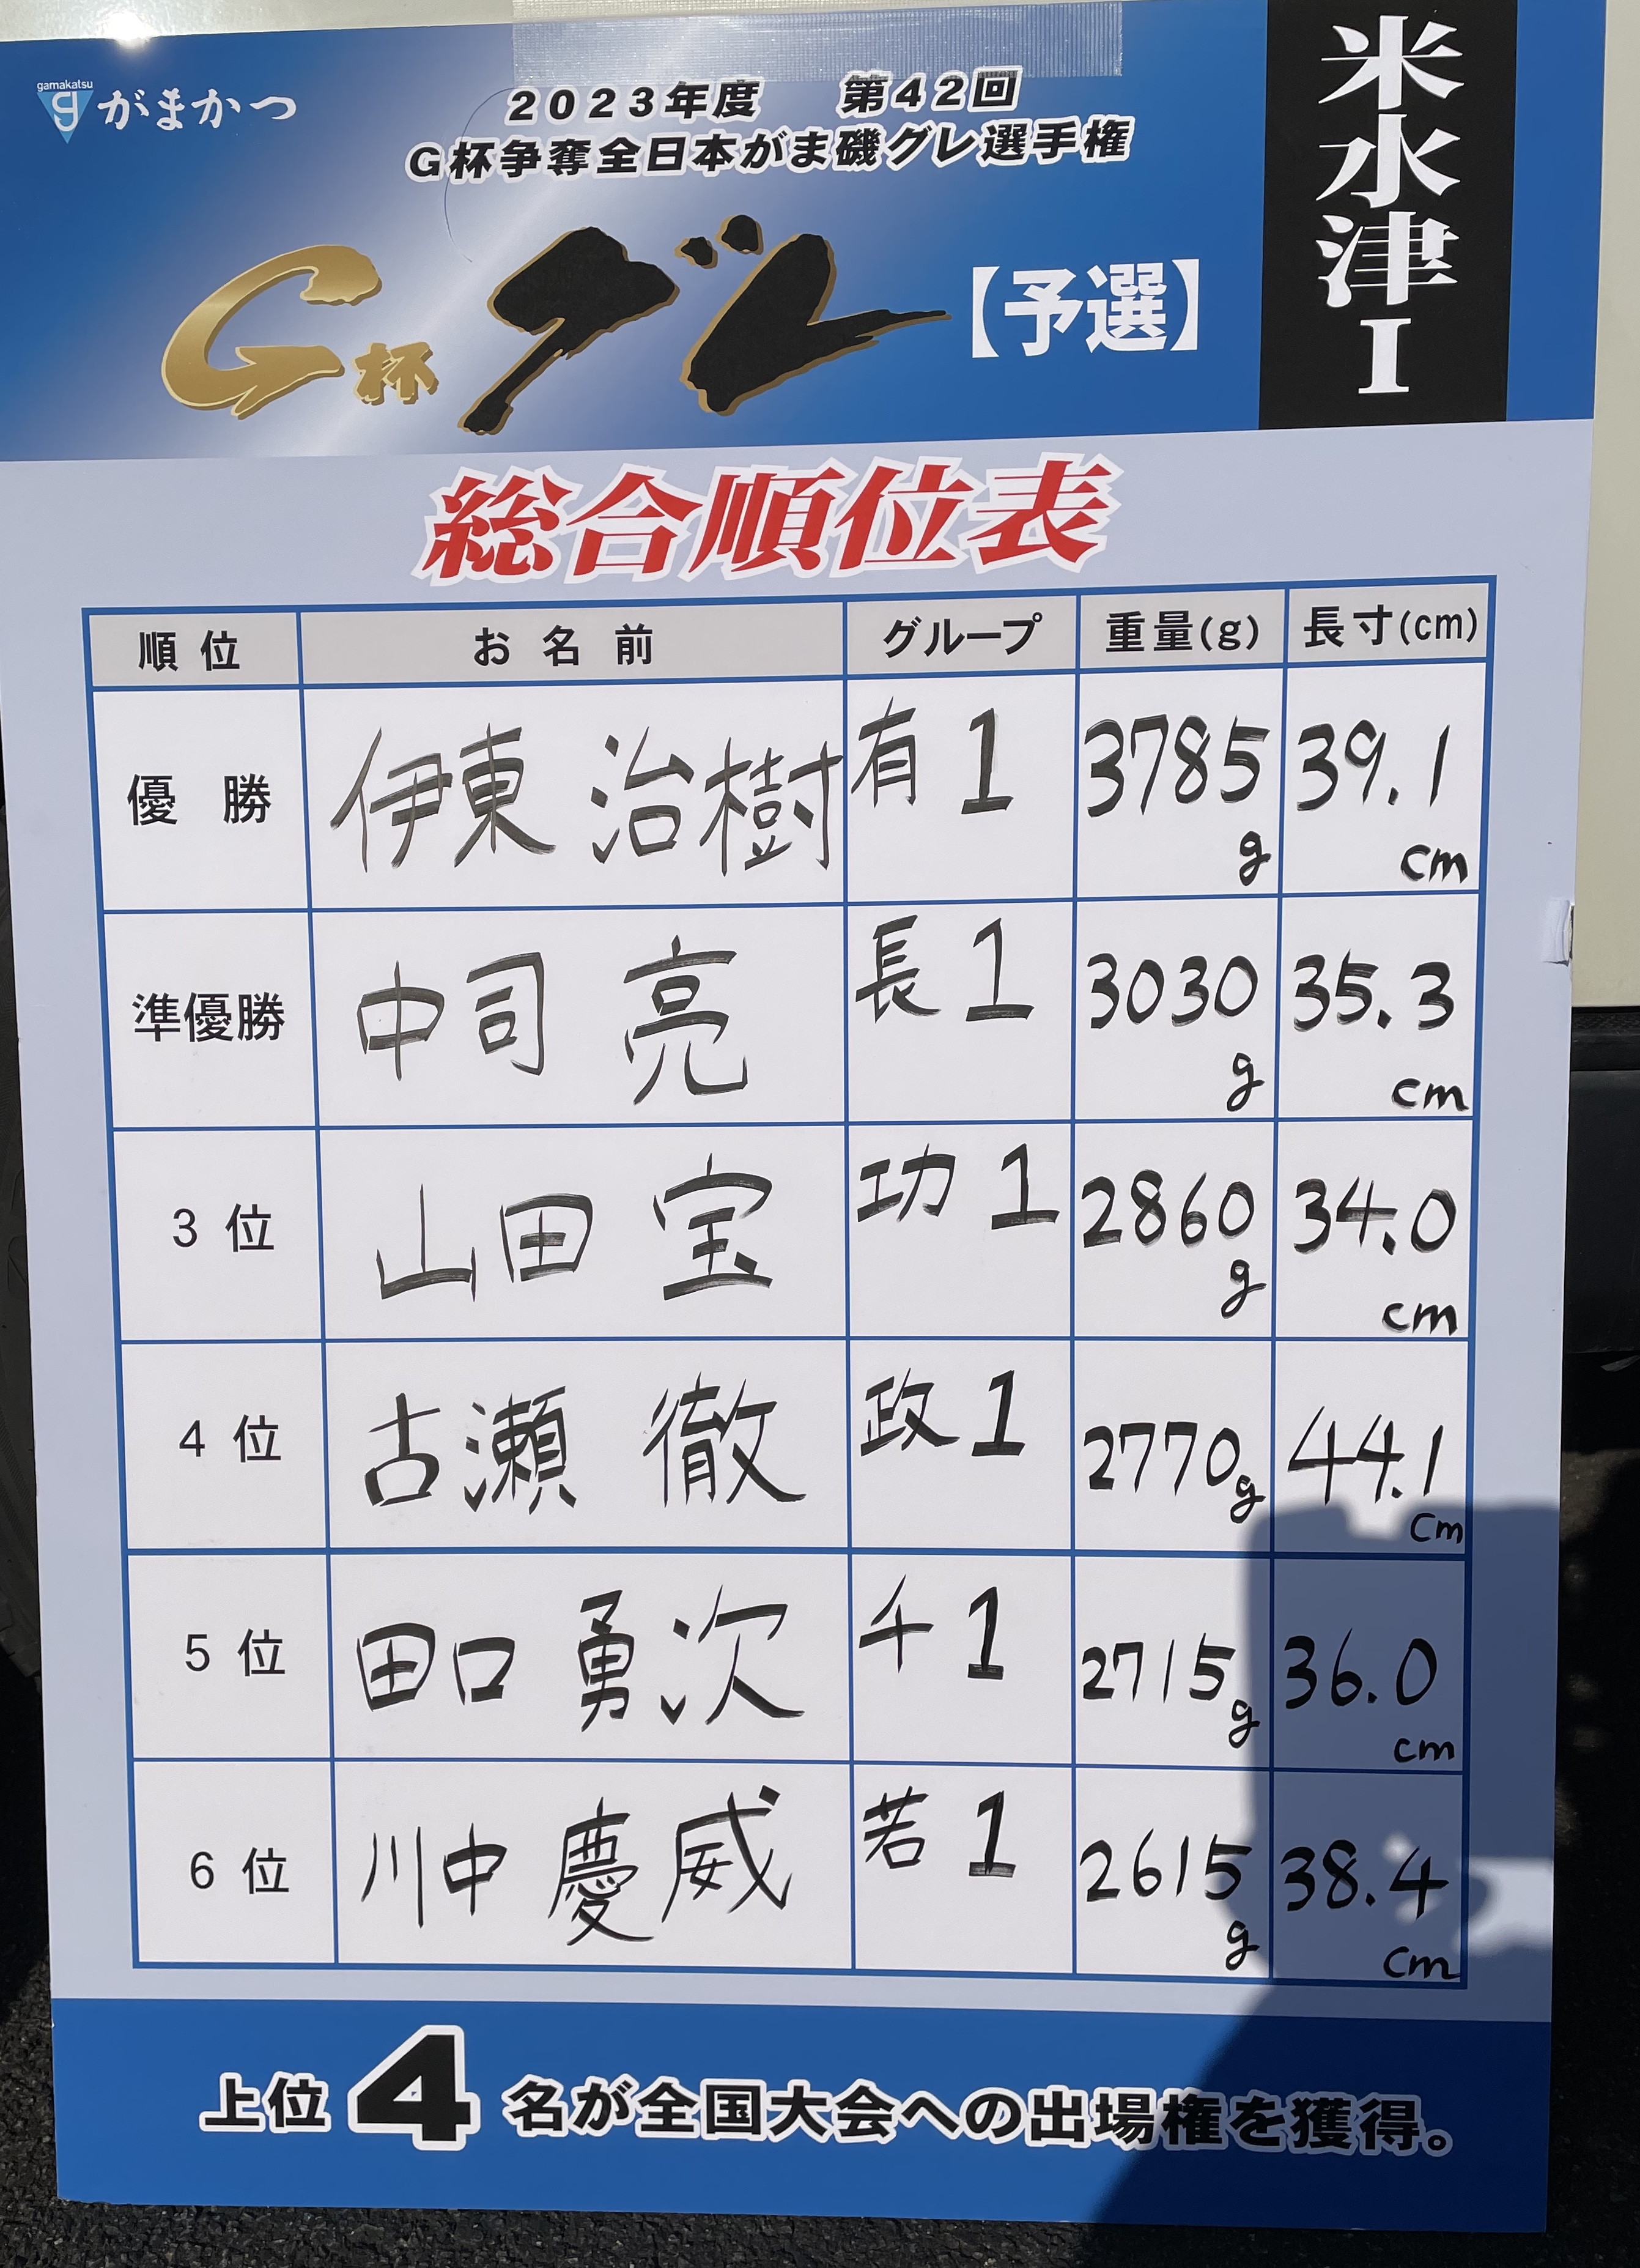 gamakatsu
g がまかつ
2023年度 第42回
G杯争奪全日本がま磯グレ選手権
G杯グレ【予選】
米水津I
総合順位表
順位 お名前 グループ 重量(g) 長寸(cm)
優勝 伊東 治樹 有1 3785g 39.1cm
準優勝 中司 亮 長1 3030g 35.3cm
3位 山田 宝 功1 2860g 34.0cm
4位 古瀬 徹 政1 2770g 44.1cm
5位 田口 勇次 千1 2715g 36.0cm
6位 川中 慶威 若1 2615g 38.4cm
上位4名が全国大会への出場権を獲得。